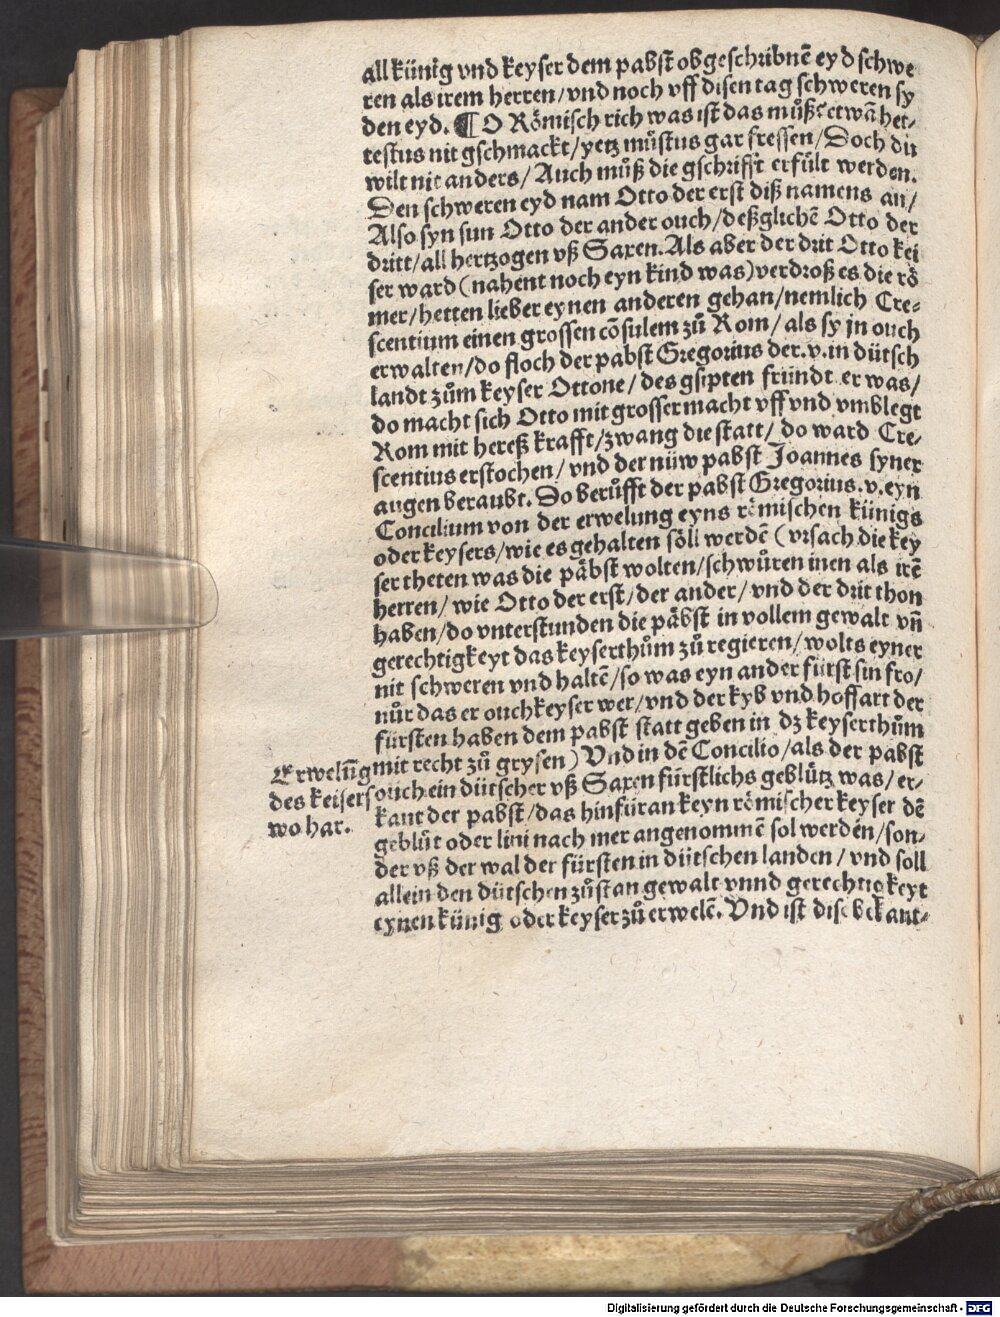 all künig vnd keyser dem pabst obgeschribnē eyd schwe
ren als irem herren/vnd noch vff disen tag schweren sy
den eyd. ¶ O Römisch rich was ist das můß etwā het-
testus nit gschmackt/yetz můstus gar fressen/Doch du
wilt nit anders/Auch můß die gschrifft erfült werden.
Den schweren eyd nam Otto der erst diß namens an/
Also syn sun Otto der ander ouch/deßglichē Otto der
dritt/all hertzogen vß Saxen. Als aber der drit Otto kei
ser ward (nahent noch eyn kind was) verdroß es die rö
mer/hetten lieber eynen anderen gehan/nemlich Cre-
scentium einen grossen cōsulem zů Rom/als sy jn ouch
erwalten/do floch der pabst Gregorius der.v.in dütsch
landt zům keyser Ottone/des gsipten fründt er was/
do macht sich Otto mit grosser macht vff vnd vmblegt
Rom mit hereß krafft/zwang die statt/do ward Cre-
scentius erstochen/vnd der nüw pabst Joannes syner
augen beraubt. Do berůfft der pabst Gregorius.v.eyn
Concilium von der erwelung eyns römischen künigs
oder keysers/wie es gehalten söll werdē (vrsach die key
ser theten was die päbst wolten/schwůren inen als irē
herren/wie Otto der erst/der ander/vnd der drit thon
haben/do vnterstunden die päbst in vollem gewalt vñ
gerechtigkeyt das keyserthům zů regieren/wolts eyner
nit schweren vnd haltē/so was eyn ander fürst sin fro/
nůr das er ouch keyser wer/vnd der kyb vnd hoffart der
fürsten haben dem pabst statt geben in dz keyserthům
mit recht zů grysen) Vnd in dē Concilio/als der pabst
ouch ein dütscher vß Saxen fürstlichs geblütz was/er-
kant der pabst/das hinfüran keyn römischer keyser dē
geblüt oder lini nach mer angenommē sol werden/son-
der vß der wal der fürsten in dütschen landen/vnd soll
allein den dütschen zůstan gewalt vnnd gerechtigkeyt
eynen künig oder keyser zů erwelē. Vnd ist dise bekant-
Erwelūg
des keisers
wo har.
Digitalisierung gefördert durch die Deutsche Forschungsgemeinschaft - DFG